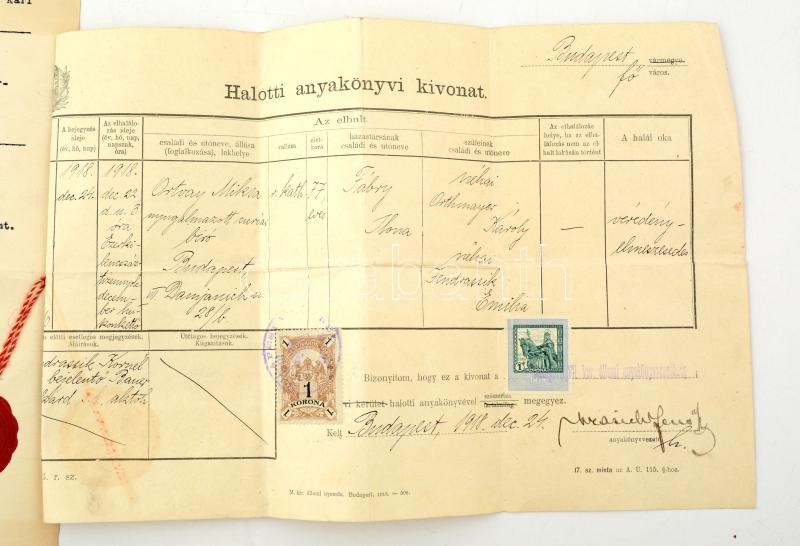 Budapest vármegye
fő város.
Halotti anyakönyvi kivonat.
A bejegyzés
ideje
(év, hó, nap)
Az elhalálo-
zás ideje
(év, hó, nap,
napszak,
óra)
Az elhalt
családi és utóneve, állása
(foglalkozása), lakhelye
vallása
élet-
kora
házastársának
családi és utóneve
szüleinek
családi és utóneve
Az elhalálozás
helye, ha az elha-
lálozás nem az el-
halt lakásán történt
A halál oka
1918.
dec. 24.
1918.
dec. 22
d. u. 3
óra
Ezerki-
lencszáz-
tizennyolc
decem-
ber hu-
szonkettő
Ortvay Miksa
nyugalmazott curiai
bíró
Budapest,
VI. Damjanich u.
28/b
r. kath.
77
éves
Fábry
Ilona
néhai
Orthmayer
Károly
néhai
Jendrassik
Emilia
—
véredény-
elmeszesedés
előtti esetleges megjegyzések.
Aláírások.
Utólagos bejegyzések.
Kiigazítások.
drassik Kornél
bejelentő
1
1 1
KORONA
1
Bizonyítom, hogy ez a kivonat a
kir. állami anyakönyvvezetőség
vi kerület halotti anyakönyvével megegyez.
Kelt Budapest, 1918. dec. 24.
anyakönyvvezető
r. sz.
M. kir. állami nyomda. Budapest, 1918.
17. sz. minta az A. U. 155. §-hoz.
darabanth